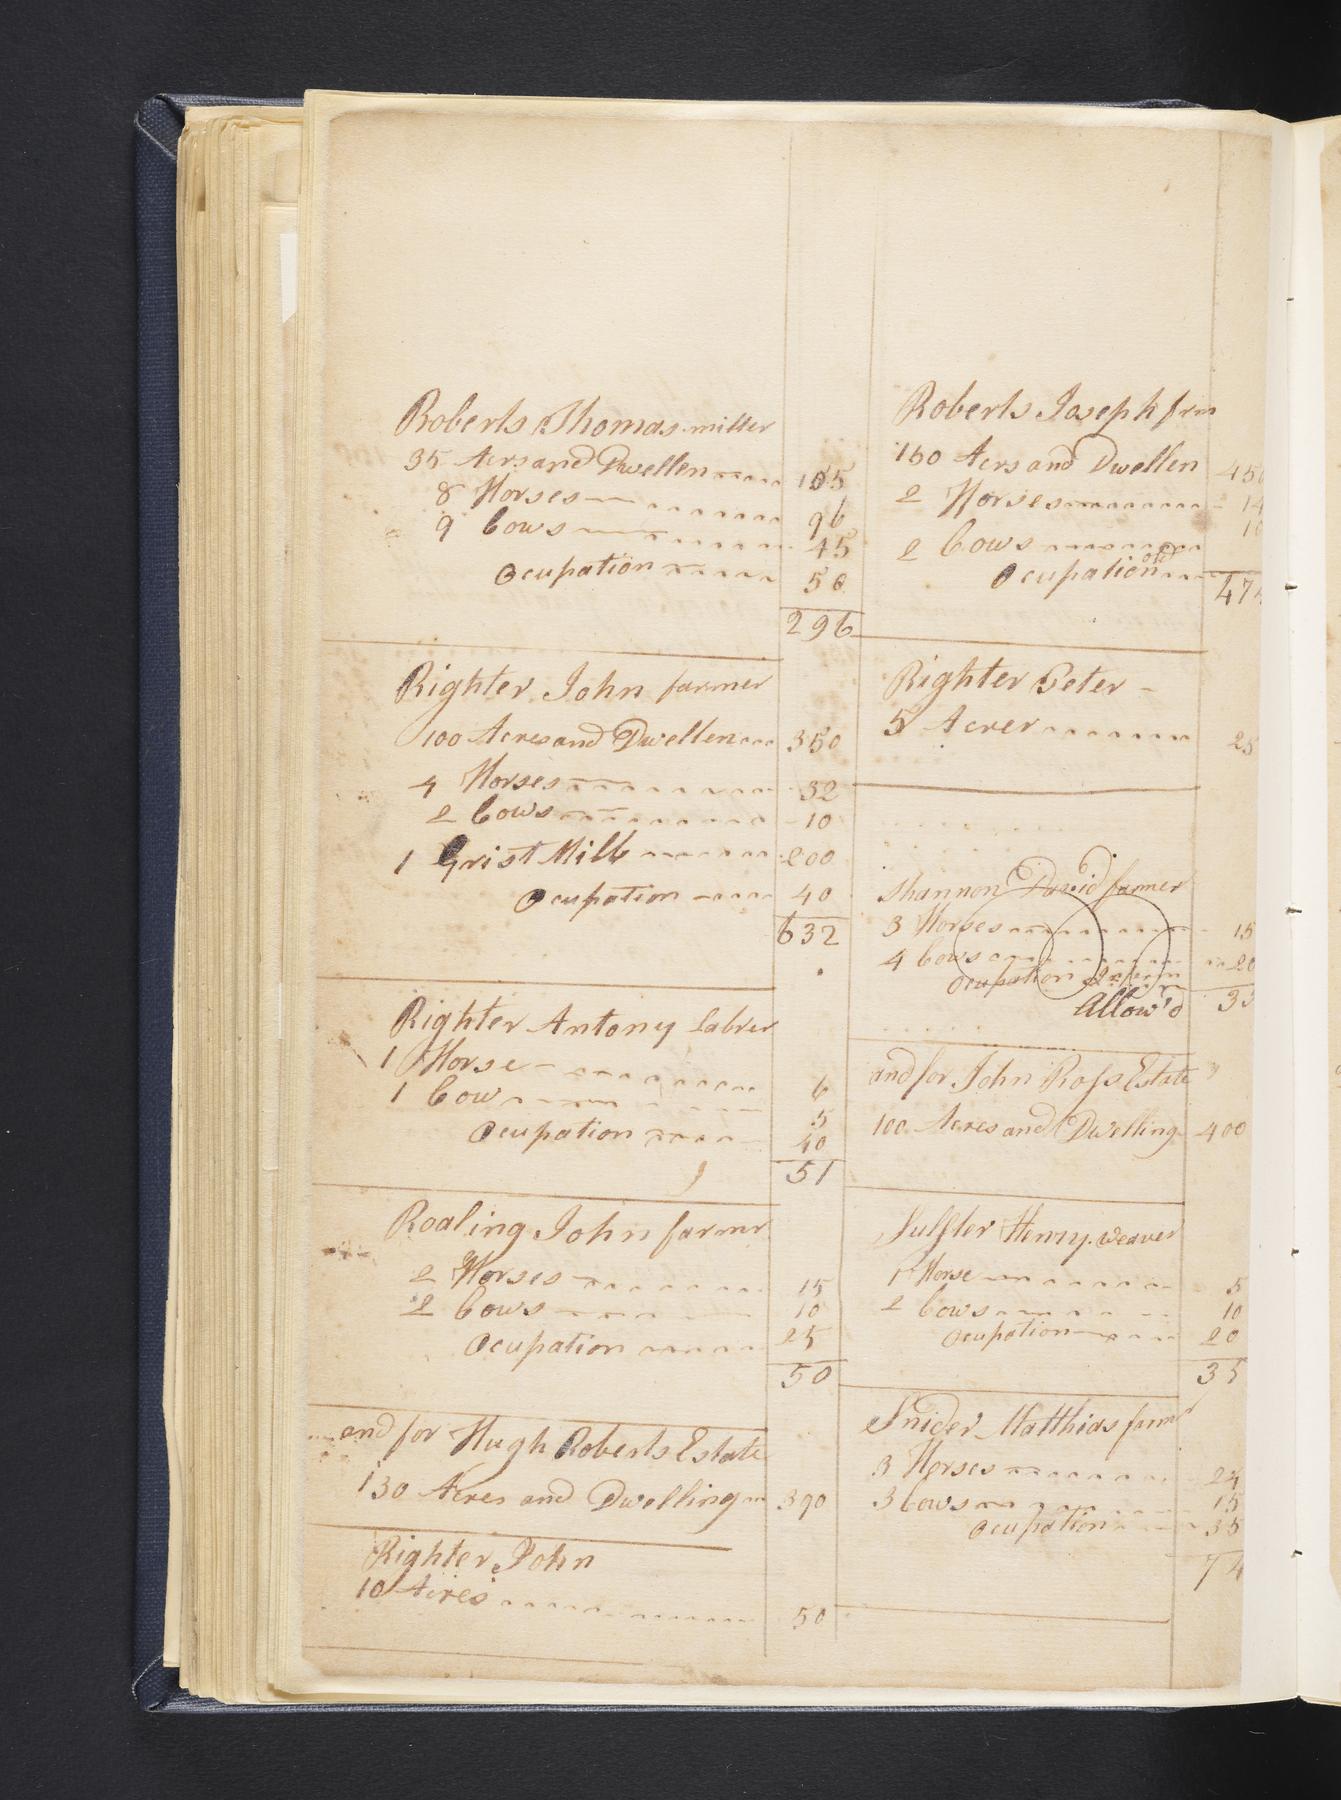 Roberts Thomas miller
35 Acrs and Dwellen 105
8 Horses 96
9 Cows 45
Ocupation 50
296
Righter John farmer
100 Acres and Dwellen 350
4 Horses 32
2 Cows 10
1 Grist Mill 200
Ocupation 40
632
Righter Antony labrer
1 Horse 6
1 Cow 5
Ocupation 40
51
Roaling John farmr
2 Horses 15
2 Cows 10
Ocupation 25
50
and for Hugh Roberts Estate
130 Acres and Dwelling 390
Righter John
10 Acres 50
Roberts Joseph frm
150 Acrs and Dwellen 450
2 Horses 14
2 Cows 10
Ocupation old
474
Righter Peter
5 Acrer 25
Shannon David farmer
3 Horses 15
4 Cows 20
Ocupation
Allow'd 35
and for John Ross Estate
100 Acres and Dwelling 400
Henry weaver
1 Horse 5
2 Cows 10
Ocupation 20
35
Snider Matthias farmr
3 Horses 24
3 Cows 15
Ocupation 35
74